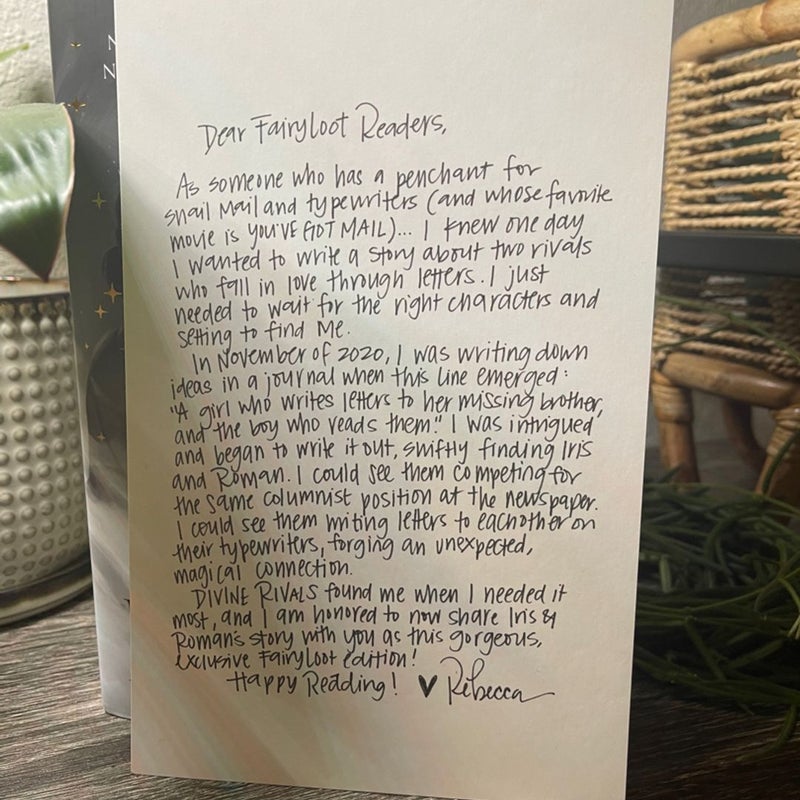 N
N
Dear Fairyloot Readers,
As someone who has a penchant for
snail mail and typewriters (and whose favorite
movie is YOU'VE GOT MAIL)... I knew one day
I wanted to write a story about two rivals
who fall in love through letters. I just
needed to wait for the right characters and
setting to find me.
In November of 2020, I was writing down
ideas in a journal when this line emerged:
"A girl who writes letters to her missing brother,
and the boy who reads them." I was intrigued
and began to write it out, swiftly finding Iris
and Roman. I could see them competing for
the same columnist position at the newspaper.
I could see them writing letters to each other on
their typewriters, forging an unexpected,
magical connection.
DIVINE RIVALS found me when I needed it
most, and I am honored to now share Iris &
Roman's story with you as this gorgeous,
exclusive Fairyloot edition!
Happy Reading! ♥ Rebecca